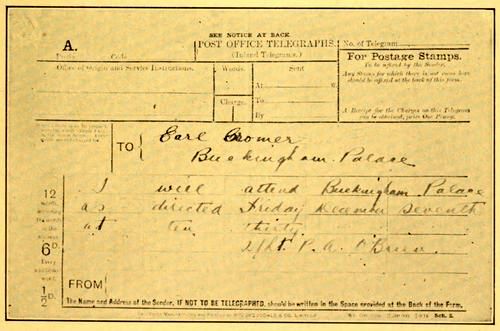 SEE NOTICE AT BACK.
A. POST OFFICE TELEGRAPHS. No. of Telegram
Code. (Inland Telegrams.) For Postage Stamps.
To be affixed by the Sender.
Office of Origin and Service Instructions. Words. Sent
Any Stamp for which there is not room here should be affixed at the back of this form.
At
Charge. To
By
A Receipt for the Charges on this Telegram can be obtained, price One Penny.
TO { Earl Cromer
Buckingham Palace
I will attend Buckingham Palace
12 as directed Friday December Seventh
words at ten thirty
6D. 2/Lt. P. A. O'Brien.
Every
word.
½D. FROM
The Name and Address of the Sender, IF NOT TO BE TELEGRAPHED, should be written in the Space provided at the Back of the Form.